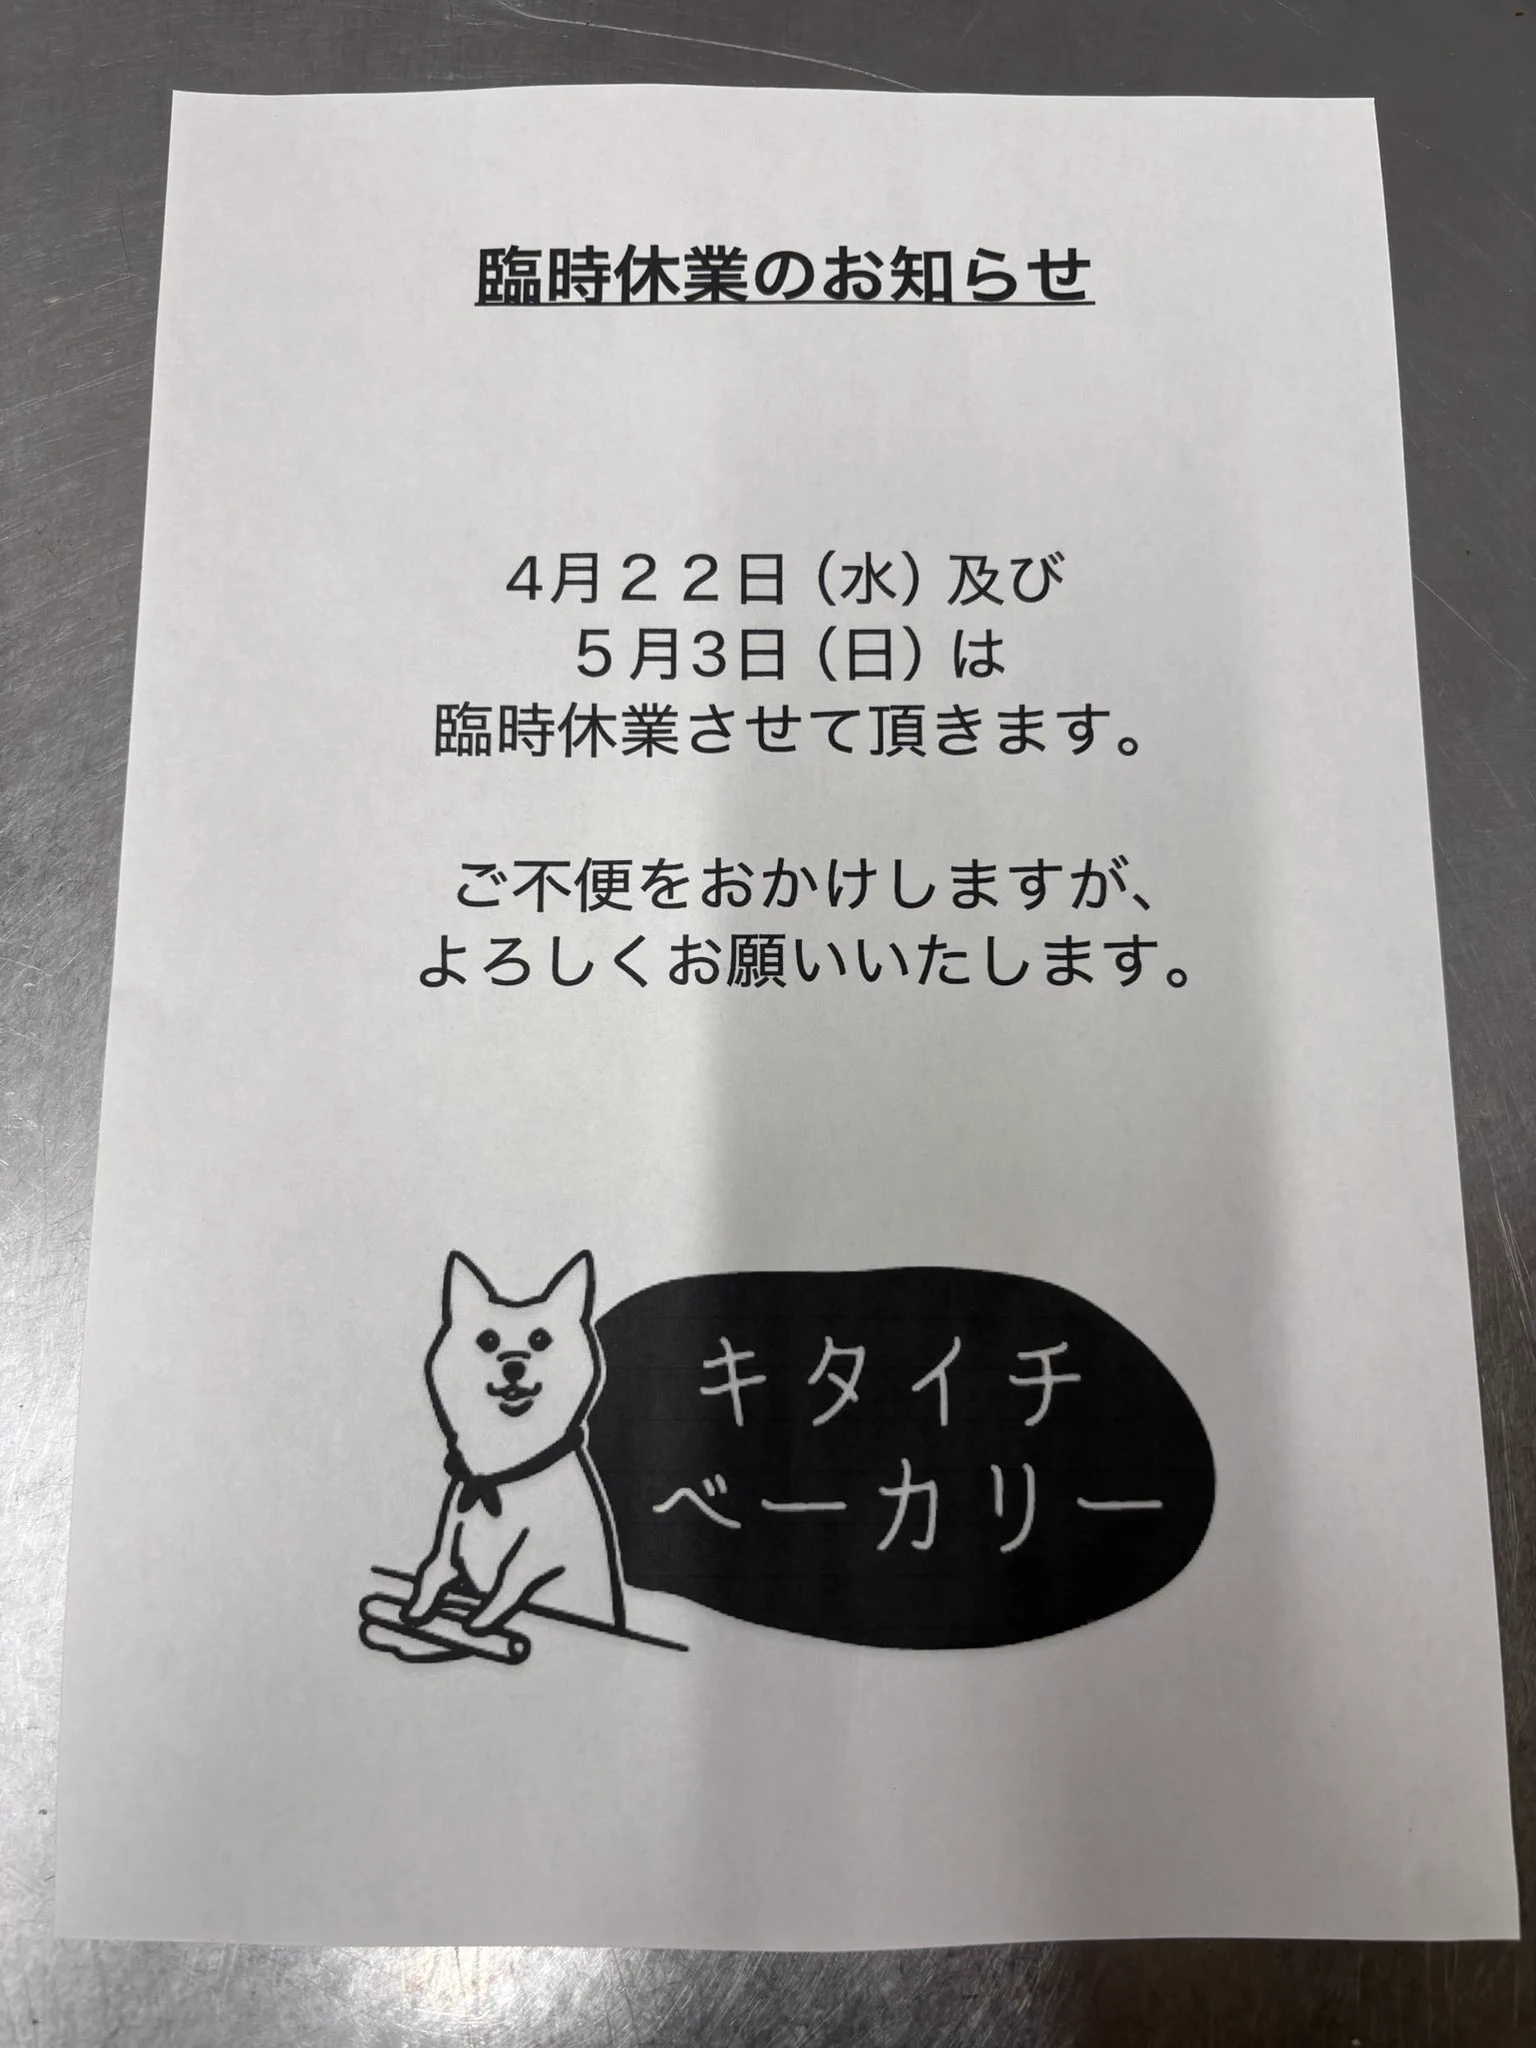 臨時休業のお知らせ
4月２２日（水）及び
５月3日（日）は
臨時休業させて頂きます。
ご不便をおかけしますが、
よろしくお願いいたします。
キタイチ
ベーカリー